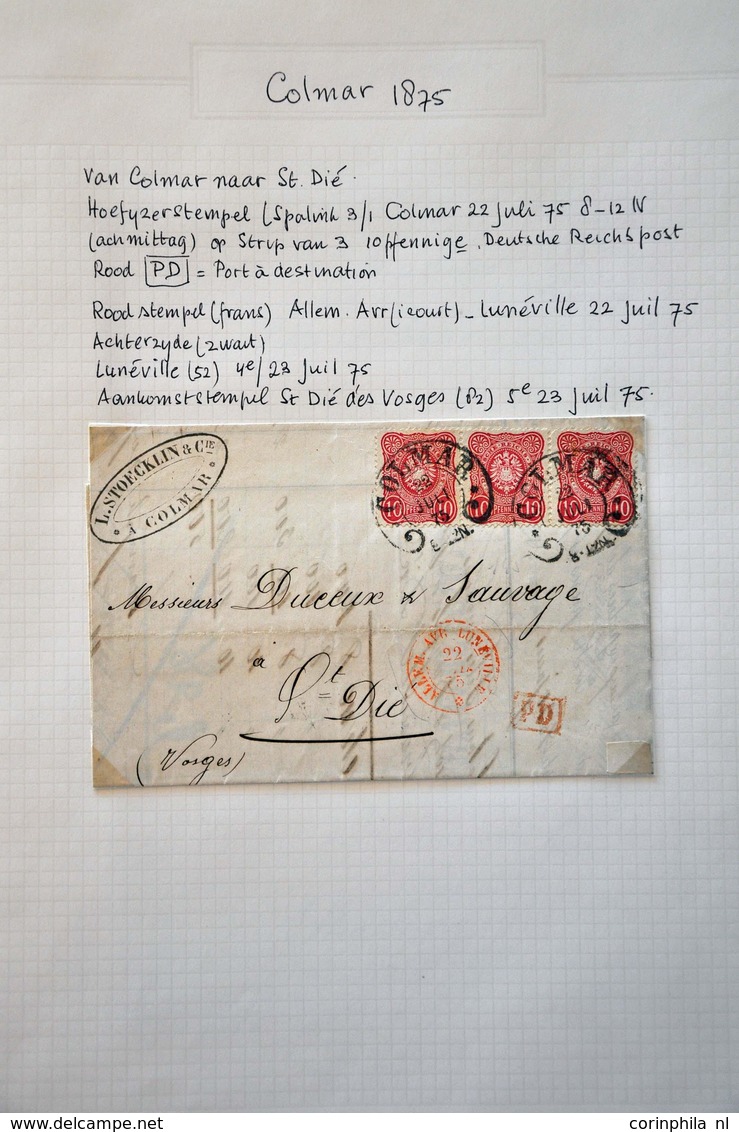 Colmar 1875
Van Colmar naar St. Dié.
Hoefyzerstempel (Spalink 3/1 Colmar 22 juli 75 8-12 N
(achmittag) op Strip van 3 10 pfennige, Deutsche Reichspost
Rood PD = Port à destination
Rood stempel (frans) Allem. Avr(icourt) - Lunéville 22 Juil 75
Achterzyde (zwart)
Lunéville (52) 4e/23 Juil 75
Aankomststempel St Dié des Vosges (82) 5e 23 Juil 75.
L. STOECKLIN & CIE
A COLMAR
COLMAR
22
JULI
75
8-12N.
COLMAR
75
8-12N.
10 10
10
10
Messieurs Duceux & Sauvage
à
St Dié
(Vosges)
ALLEM. AVR. LUNEVILLE
22
75
PD
www.delcampe.net
corinphila nl